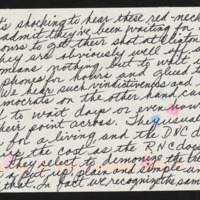 's shocking to hear these red-neck
admit they've been waiting for
ours to get their shot at a listen
hey are obviously well off
plans nothing but to wait
phones for hours and glued
We hear such vindictiveness and
mocrats on the other hand, can't
d to wait days or even hou
heir point across. They usual
for a living and the DNC d
the cost as the RNC doe
they select to demonize the tr
put up, plain and simple - un
that. In fact we recognize the sam